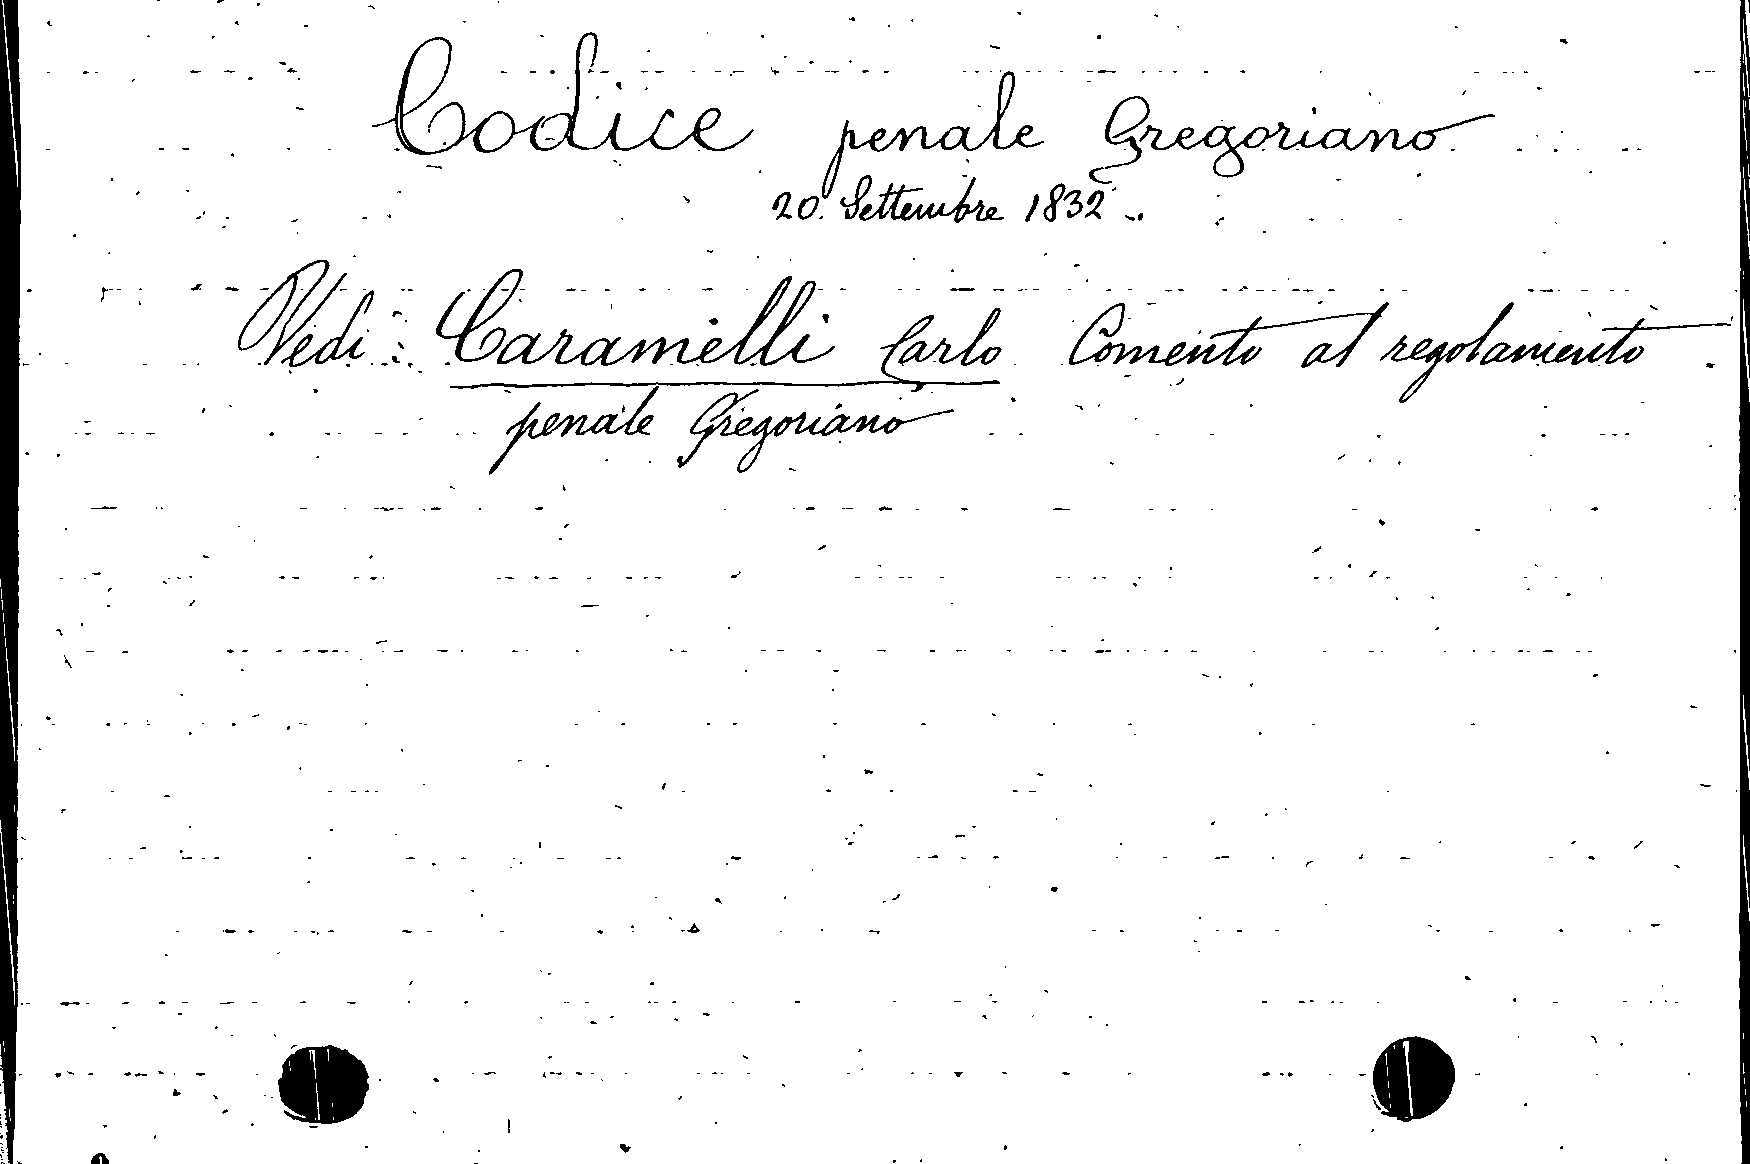 Codice penale Gregoriano
20 Settembre 1832
Vedi: Caramelli Carlo Comento al regolamento
penale Gregoriano